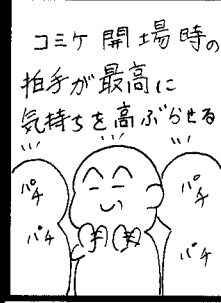 コミケ開場時の
拍手が最高に
気持ちを高ぶらせる
パチ
パチ
パチ
パチ